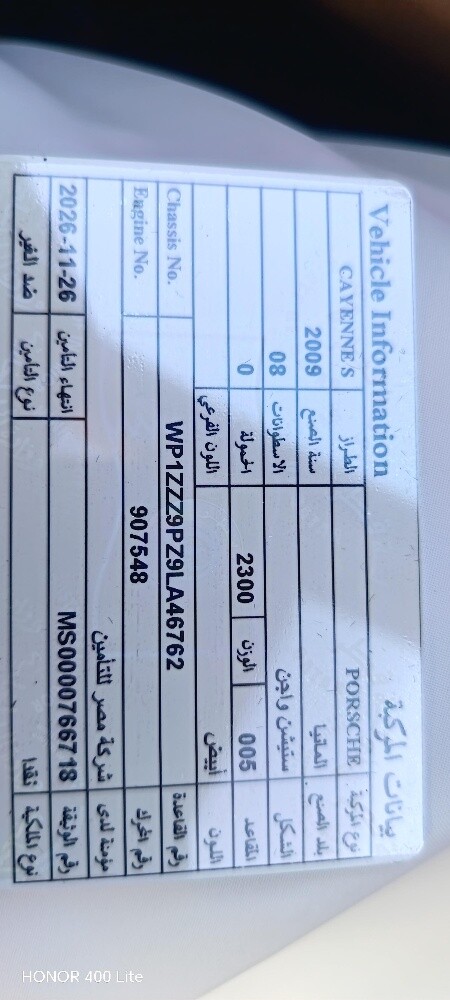 Vehicle Information بيانات المركبة
نوع المركبة PORSCHE الطراز CAYENNE S
بلد الصنع المانيا سنة الصنع 2009
الشكل ستيشن واجن الاسطوانات 08
المقاعد 005 الوزن 2300 الحمولة 0
اللون أبيض اللون الفرعي
رقم القاعدة WP1ZZZ9PZ9LA46762 Chassis No.
رقم المحرك 907548 Engine No.
مؤمنة لدى شركة مصر للتأمين
رقم الوثيقة MS0000766718 انتهاء التامين 2026-11-26
نوع الملكية نقدا نوع التامين ضد الغير
HONOR 400 Lite